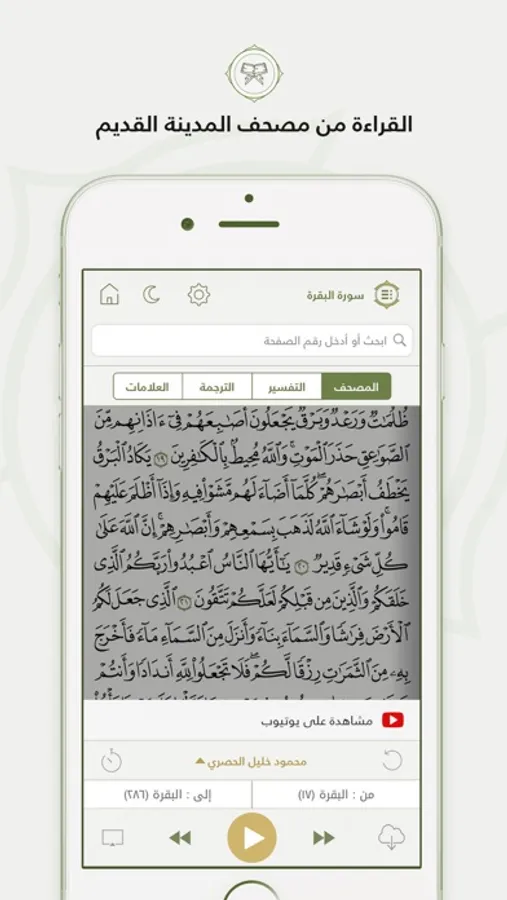 القراءة من مصحف المدينة القديم
سورة البقرة
ابحث أو أدخل رقم الصفحة
المصحف التفسير الترجمة العلامات
ظُلُمَٰتٌ وَرَعْدٌ وَبَرْقٌ يَجْعَلُونَ أَصَٰبِعَهُمْ فِىٓ ءَاذَانِهِم مِّنَ
ٱلصَّوَٰعِقِ حَذَرَ ٱلْمَوْتِ وَٱللَّهُ مُحِيطٌۢ بِٱلْكَٰفِرِينَ ١٩ يَكَادُ ٱلْبَرْقُ
يَخْطَفُ أَبْصَٰرَهُمْ كُلَّمَآ أَضَآءَ لَهُم مَّشَوْا۟ فِيهِ وَإِذَآ أَظْلَمَ عَلَيْهِمْ
قَامُوا۟ وَلَوْ شَآءَ ٱللَّهُ لَذَهَبَ بِسَمْعِهِمْ وَأَبْصَٰرِهِمْ إِنَّ ٱللَّهَ عَلَىٰ
كُلِّ شَىْءٍ قَدِيرٌ ٢٠ يَٰٓأَيُّهَا ٱلنَّاسُ ٱعْبُدُوا۟ رَبَّكُمُ ٱلَّذِى
خَلَقَكُمْ وَٱلَّذِينَ مِن قَبْلِكُمْ لَعَلَّكُمْ تَتَّقُونَ ٢١ ٱلَّذِى جَعَلَ لَكُمُ
ٱلْأَرْضَ فِرَٰشًا وَٱلسَّمَآءَ بِنَآءً وَأَنزَلَ مِنَ ٱلسَّمَآءِ مَآءً فَأَخْرَجَ
بِهِۦ مِنَ ٱلثَّمَرَٰتِ رِزْقًا لَّكُمْ فَلَا تَجْعَلُوا۟ لِلَّهِ أَندَادًا وَأَنتُمْ
مشاهدة على يوتيوب
محمود خليل الحصري
من : البقرة (١٧) إلى : البقرة (٢٨٦)